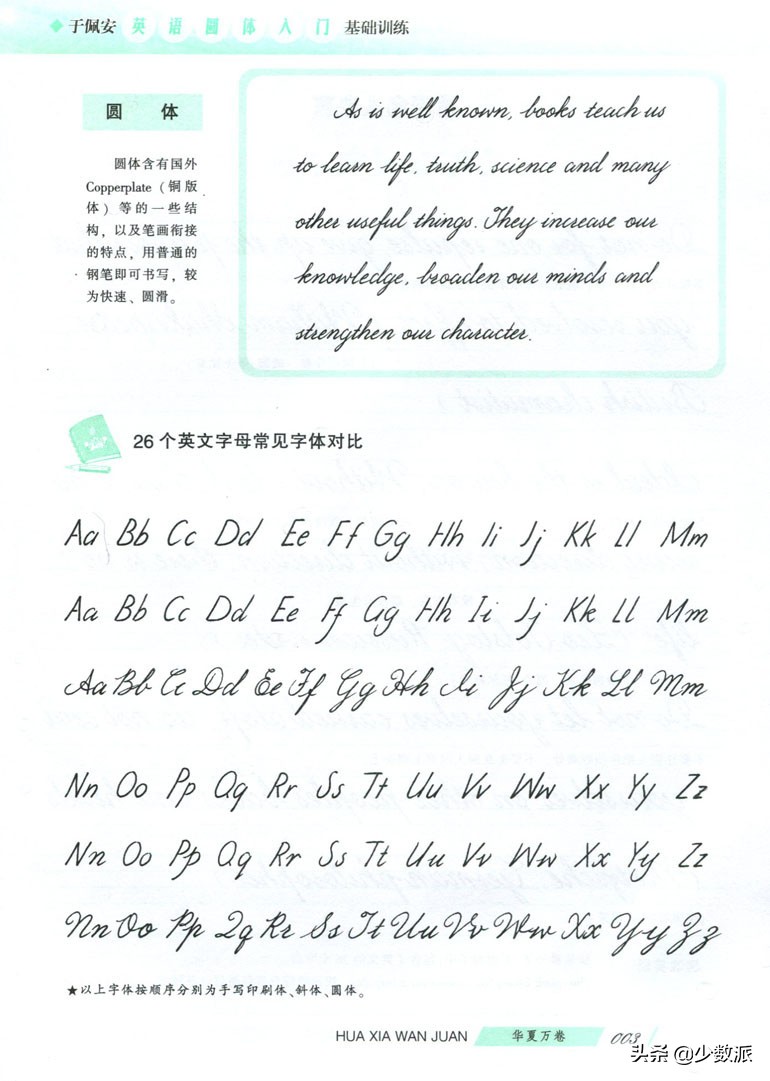 于佩安 英语圆体入门 基础训练
圆 体
圆体含有国外
Copperplate（铜版
体）等的一些结
构，以及笔画衔接
的特点，用普通的
钢笔即可书写，较
为快速、圆滑。
As is well known, books teach us
to learn life, truth, science and many
other useful things. They increase our
knowledge, broaden our minds and
strengthen our character.
26个英文字母常见字体对比
Aa Bb Cc Dd Ee Ff Gg Hh Ii Jj Kk Ll Mm
Aa Bb Cc Dd Ee Ff Gg Hh Ii Jj Kk Ll Mm
Aa Bb Cc Dd Ee Ff Gg Hh Ii Jj Kk Ll Mm
Nn Oo Pp Qq Rr Ss Tt Uu Vv Ww Xx Yy Zz
Nn Oo Pp Qq Rr Ss Tt Uu Vv Ww Xx Yy Zz
Nn Oo Pp Qq Rr Ss Tt Uu Vv Ww Xx Yy Zz
★以上字体按顺序分别为手写印刷体、斜体、圆体。
HUA XIA WAN JUAN 华夏万卷 003
头条 @少数派